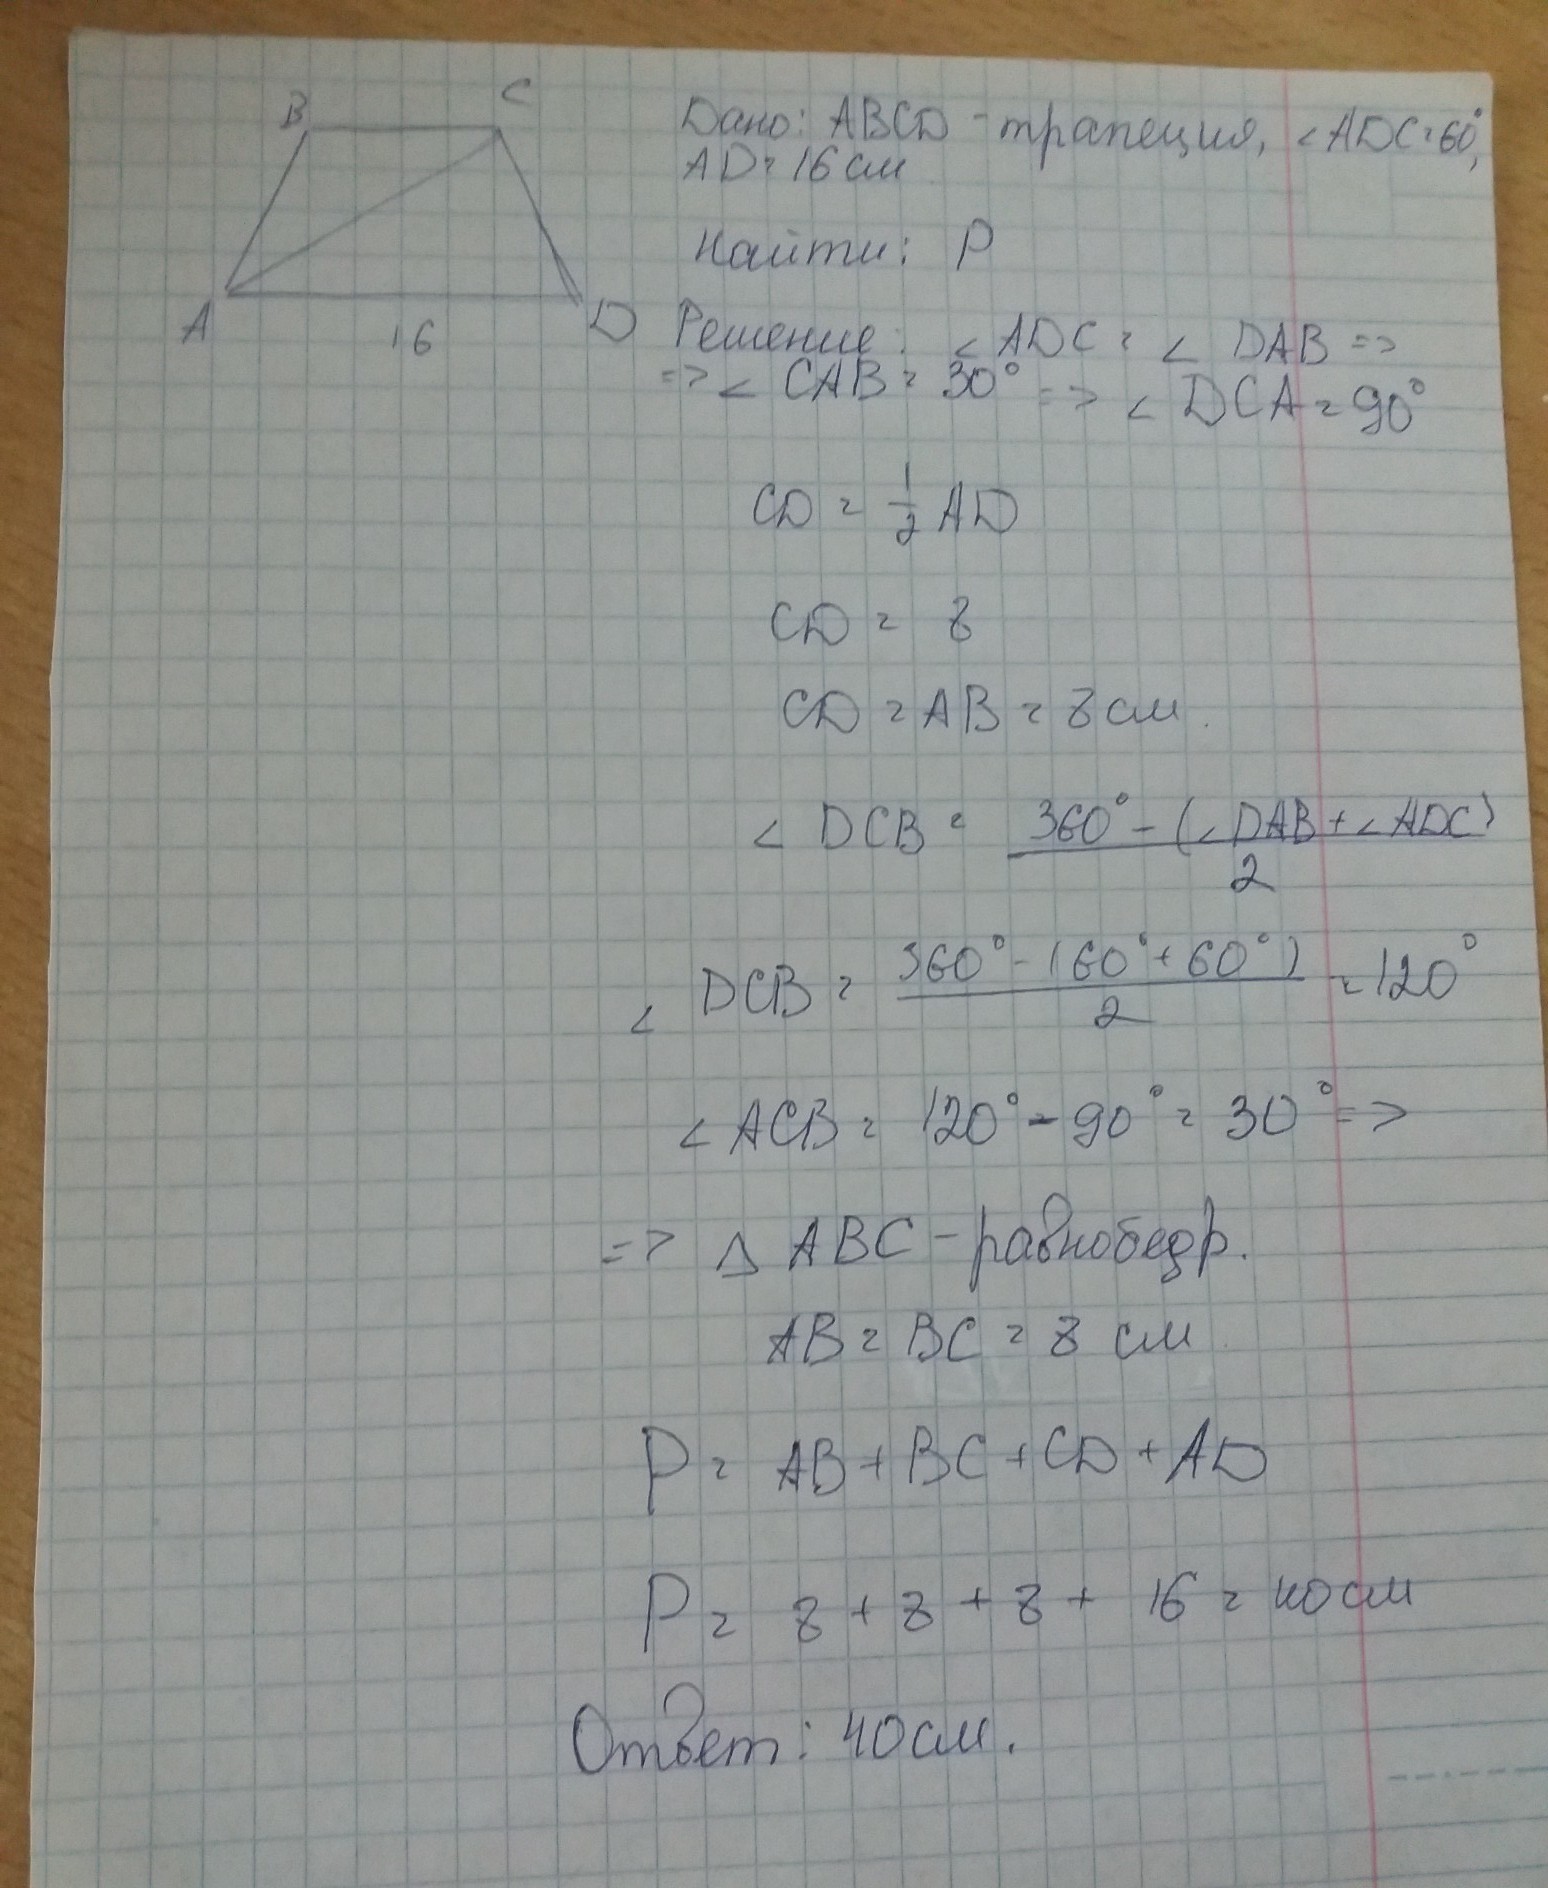 B C
A 16 D
Дано: ABCD - трапеция, ∠ADC = 60°,
AD = 16 см
Найти: P
Решение: ∠ADC = ∠DAB =>
=> ∠CAB = 30° => ∠DCA = 90°
CD = 1/2 AD
CD = 8
CD = AB = 8 см.
∠DCB = (360° - (∠DAB + ∠ADC))/2
∠DCB = (360° - (60° + 60°))/2 = 120°
∠ACB = 120° - 90° = 30° =>
=> Δ ABC - равнобедр.
AB = BC = 8 см
P = AB + BC + CD + AD
P = 8 + 8 + 8 + 16 = 40 см
Ответ: 40 см.